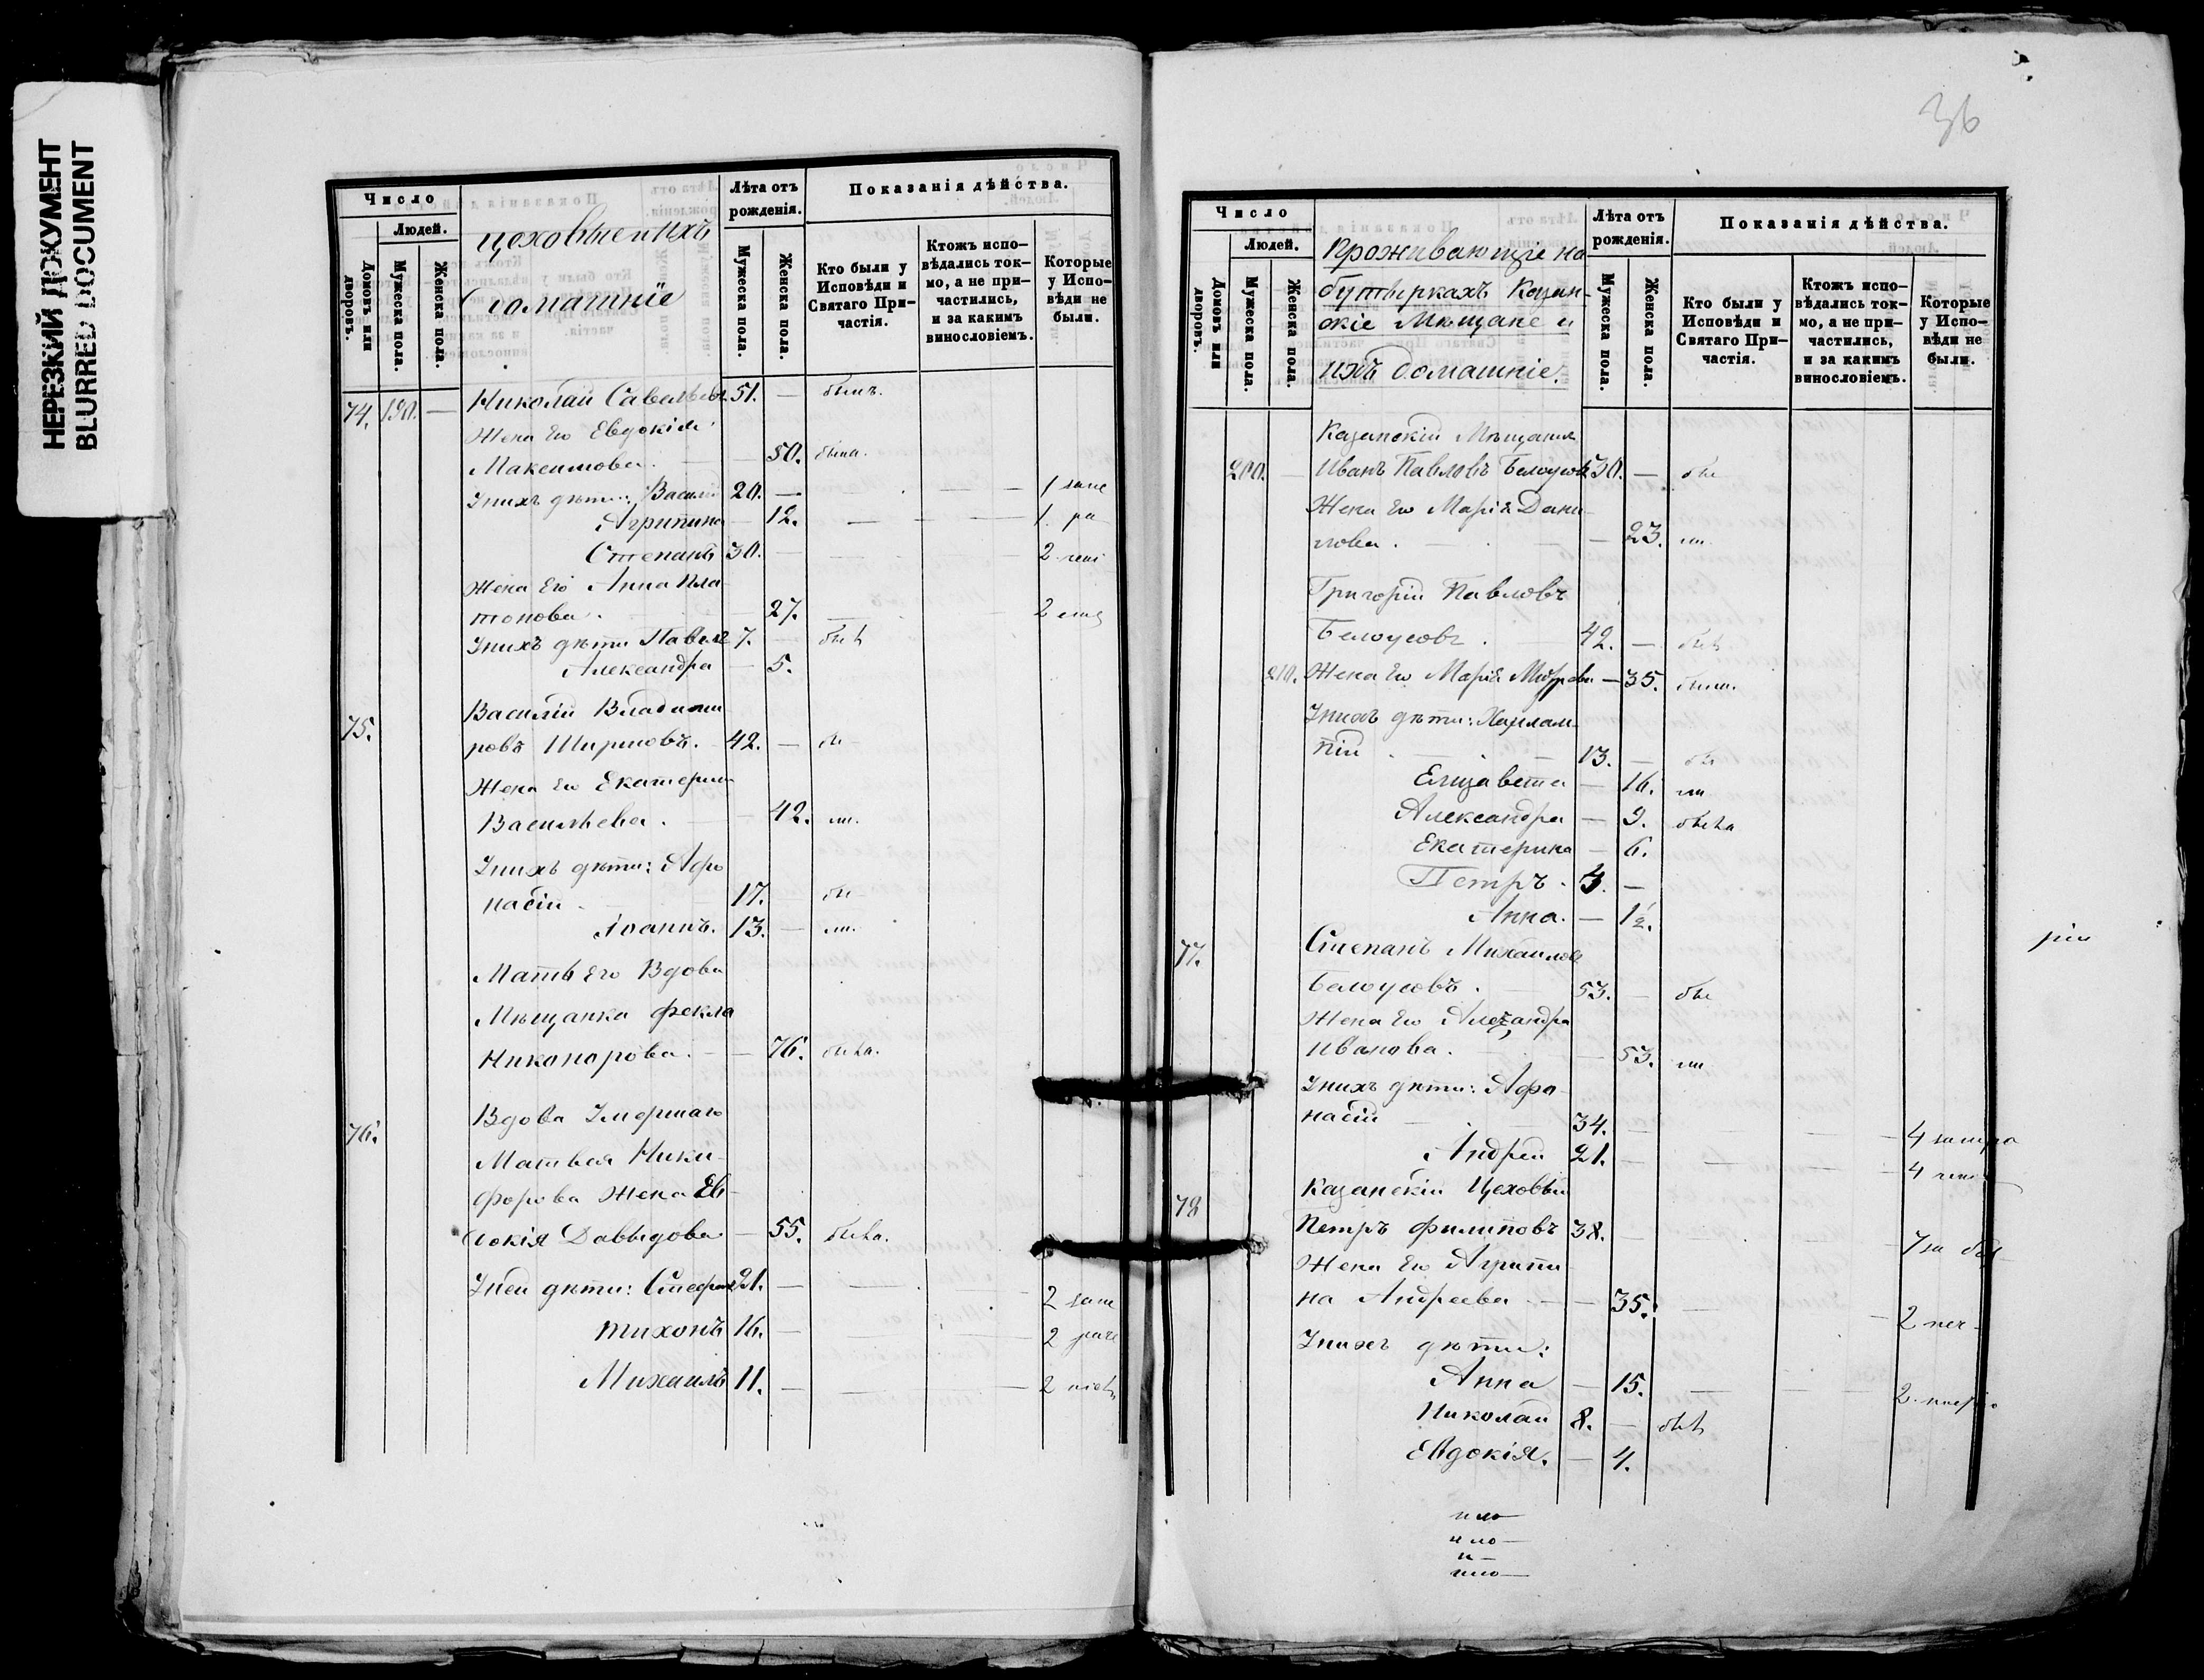 НЕРЕЗКИЙ ДОКУМЕНТ
BLURRED DOCUMENT
Число
Людей.
Домовъ или дворовъ.
Мужеска пола.
Женска пола.
домашніе
Лѣта отъ рожденія.
Мужеска пола.
Женска пола.
Показанія дѣйства.
Кто были у Исповѣди и Святаго Причастія.
Ктожъ исповѣдались токмо, а не причастились, и за какимъ винословіемъ.
Которые у Исповѣди не были.
74. 190. — Николай Савельевъ 51. — былъ.
Жена Его Евдокія
Максимова. — 50. была.
У нихъ дѣти: Василій 20. — 1
Агрипина — 12. — 1.
Степанъ 30. — 2
Жена Его Анна Пла
тонова. — 27. — 2
У нихъ дѣти Павелъ 7. —
Александра — 5.
75. Василій Владими
ровъ 42. —
Жена Его Екатерина
Васильева. — 42.
У нихъ дѣти: Афо
насій 17.
Іоаннъ. 13. —
Мать Его Вдова
Мѣщанка Фекла
Никонорова. — 76.
76. Вдова Умершаго
Матвея Ники-
форова Жена Ев-
докія Давыдова — 55.
У ней дѣти: Стефанъ 21. — 2
Тихонъ 16. — 2
Михаилъ 11. — 2
36
Число
Людей.
Домовъ или дворовъ.
Мужеска пола.
Женска пола.
Проживающіе на
Казан-
скіе Мѣщане и
ихъ домашніе.
Лѣта отъ рожденія.
Мужеска пола.
Женска пола.
Показанія дѣйства.
Кто были у Исповѣди и Святаго Причастія.
Ктожъ исповѣдались токмо, а не причастились, и за какимъ винословіемъ.
Которые у Исповѣди не были.
Казанскій Мѣщанинъ
200. — Иванъ Павловъ Белоусовъ 30. —
Жена Его Марія Дани
лова. — 23.
Григорій Павловъ
Белоусовъ. 42. —
210. Жена Его Марія — 35. была.
У нихъ дѣти: Харлам-
пій 13. —
Елизавета — 16.
Александра — 9.
Екатерина — 6.
Петръ. —
Анна. — 1½.
77. Степанъ Михаиловъ
Белоусовъ. 53. —
Жена Его Александра
Иванова. — 53.
У нихъ дѣти: Афо-
насій 34. — 4
Андрей 21. — 4
78 Казанскій Цеховый
Петръ Филиповъ 38. — 7
Жена Его Агрипи
на Андреева — 35. — 2
У нихъ дѣти:
Анна — 15. — 2
Николай 8. —
Евдокія. — 4.